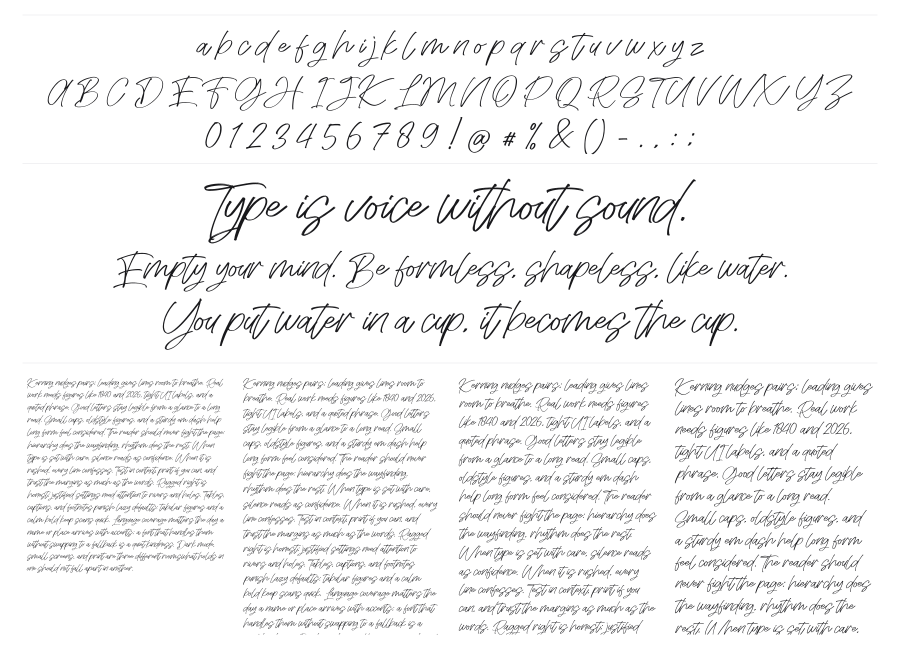 a b c d e f g h i j k l m n o p q r s t u v w x y z
A B C D E F G H I J K L M N O P Q R S T U V W X Y Z
0 1 2 3 4 5 6 7 8 9 ! @ # % & ( ) - . , : ;
Type is voice without sound.
Empty your mind. Be formless, shapeless, like water.
You put water in a cup, it becomes the cup.
Kerning nudges pairs; leading gives lines room to breathe. Real
work needs figures like 1840 and 2026, tight UI labels, and a
quoted phrase. Good letters stay legible from a glance to a long
read. Small caps, oldstyle figures, and a sturdy em dash help
long form feel considered. The reader should never fight the page;
hierarchy does the wayfinding, rhythm does the rest. When
type is set with care, silence reads as confidence. When it is
rushed, every line confesses. Test in context, print if you can, and
trust the margins as much as the words. Ragged right is
honest; justified settings need attention to rivers and holes. Tables,
captions, and footnotes punish lazy defaults; tabular figures and a
calm bold keep scans quick. Language coverage matters the day a
name or place arrives with accents; a font that handles them
without swapping to a fallback is a quiet kindness. Dark mode,
small screens, and print are three different rooms; what holds in
one should not fall apart in another.
Kerning nudges pairs; leading gives lines room to
breathe. Real work needs figures like 1840 and 2026,
tight UI labels, and a quoted phrase. Good letters
stay legible from a glance to a long read. Small
caps, oldstyle figures, and a sturdy em dash help
long form feel considered. The reader should never
fight the page; hierarchy does the wayfinding,
rhythm does the rest. When type is set with care,
silence reads as confidence. When it is rushed, every
line confesses. Test in context, print if you can, and
trust the margins as much as the words. Ragged
right is honest; justified settings need attention to
rivers and holes. Tables, captions, and footnotes
punish lazy defaults; tabular figures and a calm
bold keep scans quick. Language coverage matters the
day a name or place arrives with accents; a font that
handles them without swapping to a fallback is a
Kerning nudges pairs; leading gives lines
room to breathe. Real work needs figures
like 1840 and 2026, tight UI labels, and a
quoted phrase. Good letters stay legible
from a glance to a long read. Small caps,
oldstyle figures, and a sturdy em dash
help long form feel considered. The reader
should never fight the page; hierarchy does
the wayfinding, rhythm does the rest.
When type is set with care, silence reads
as confidence. When it is rushed, every
line confesses. Test in context, print if you
can, and trust the margins as much as the
words. Ragged right is honest; justified
Kerning nudges pairs; leading gives
lines room to breathe. Real work
needs figures like 1840 and 2026,
tight UI labels, and a quoted
phrase. Good letters stay legible
from a glance to a long read.
Small caps, oldstyle figures, and
a sturdy em dash help long form
feel considered. The reader should
never fight the page; hierarchy does
the wayfinding, rhythm does the
rest. When type is set with care,